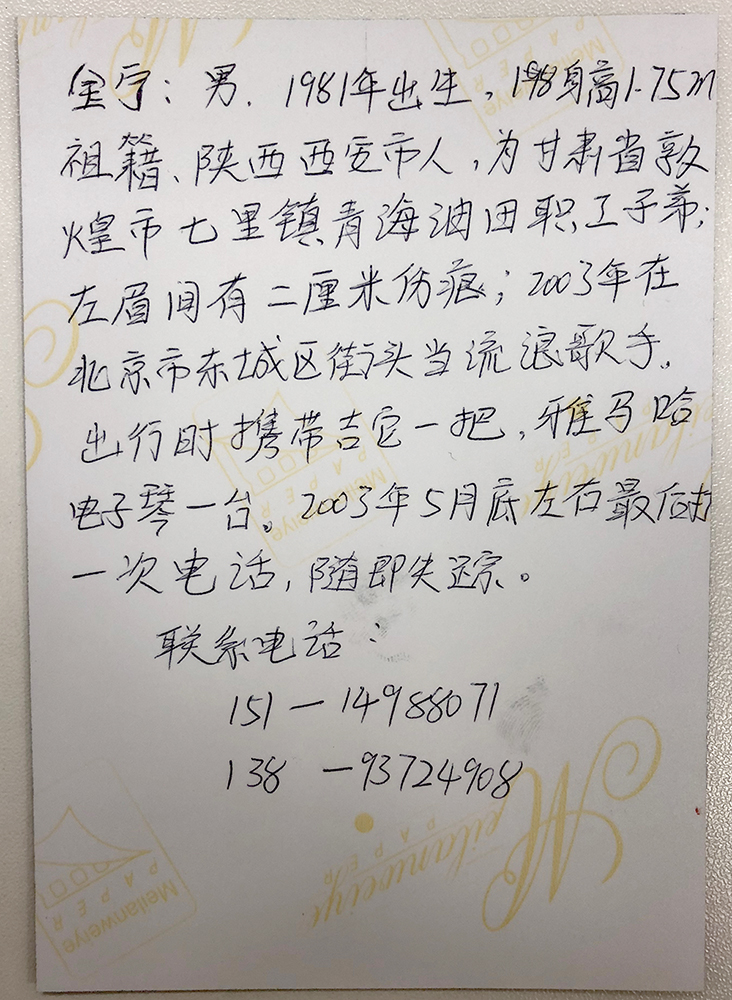 金宁：男．1981年出生，198身高1.75m
祖籍、陕西西安市人，为甘肃省敦
煌市七里镇青海油田职工子弟；
左眉间有二厘米伤痕；2003年在
北京市东城区街头当流浪歌手，
出行时携带吉它一把，雅马哈
电子琴一台。2003年5月底左右最后打
一次电话，随即失踪。
联系电话：
151—14988071
138 —93724908
Meilanweiye
PAPER
Meilanweiye
PAPER
Meilanweiye
PAPER